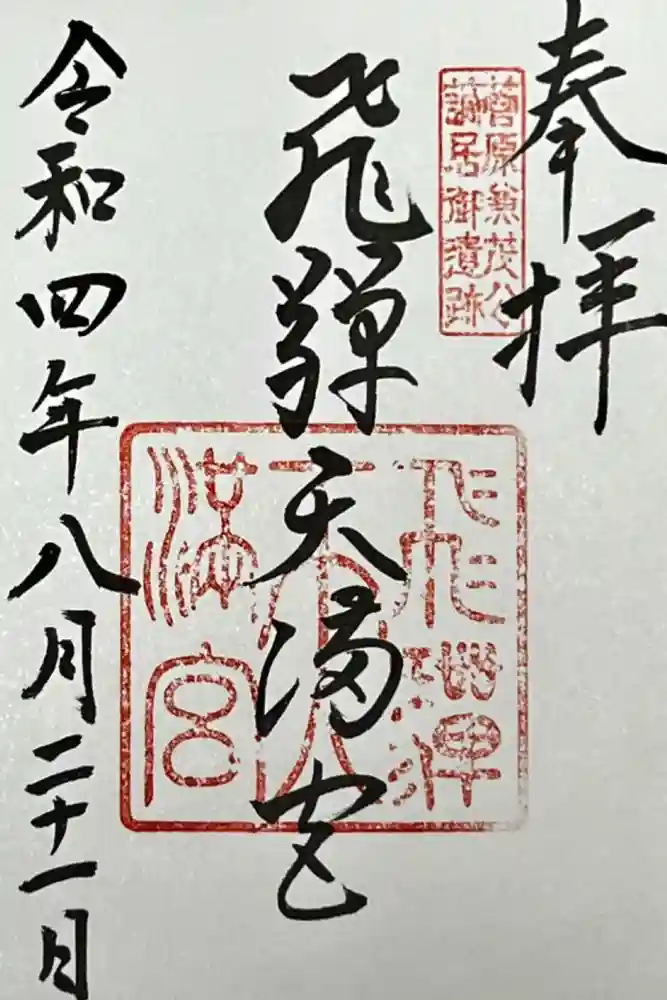 奉拝
菅原兼茂公
謫居御遺跡
飛騨天満宮
飛騨
天
満宮
令和四年八月二十一日